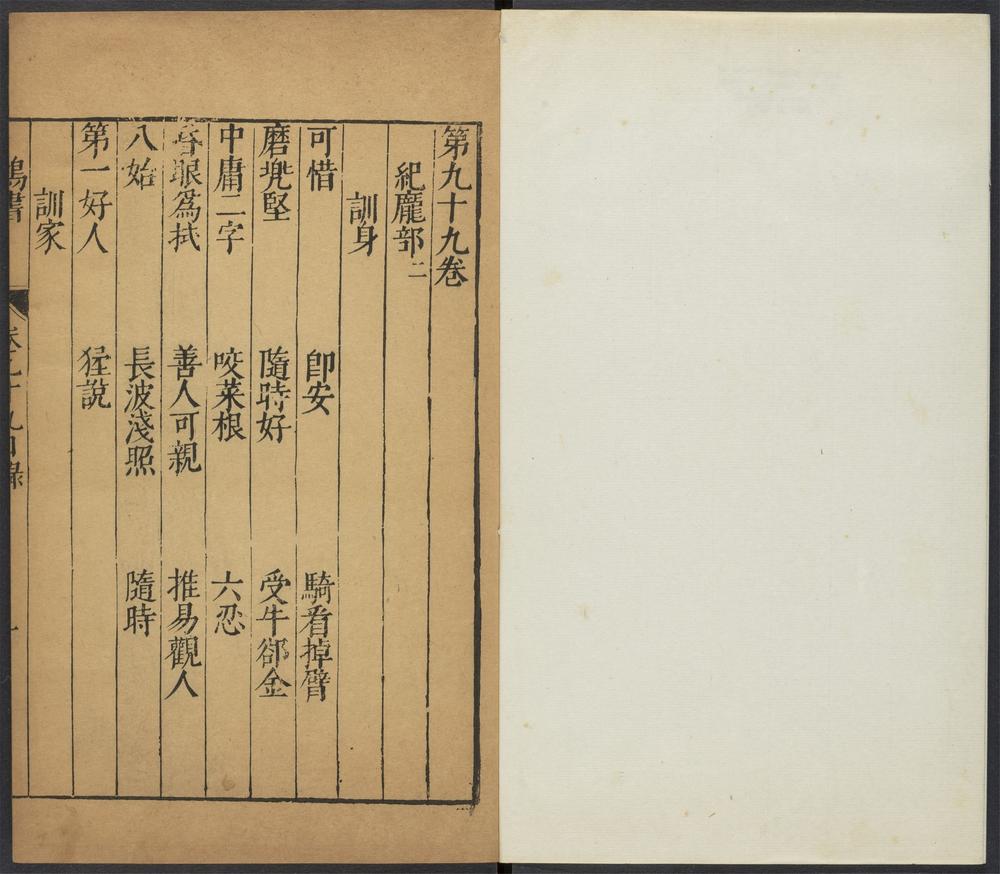 第九十九卷
紀龐部二
訓身
可惜 卽安 騎看掉臂
磨兠堅 隨時好 受牛郤金
中庸二字 咬菜根 六忍
眼爲拭 善人可親 推易觀人
八始 長波淺照 隨時
第一好人 猩說
訓家
鴻書
九目錄